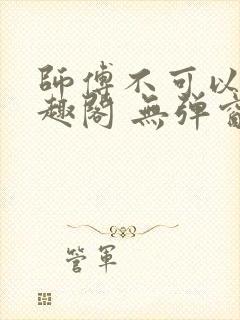 師傅不可以
趣閣 無彈窗
管軍